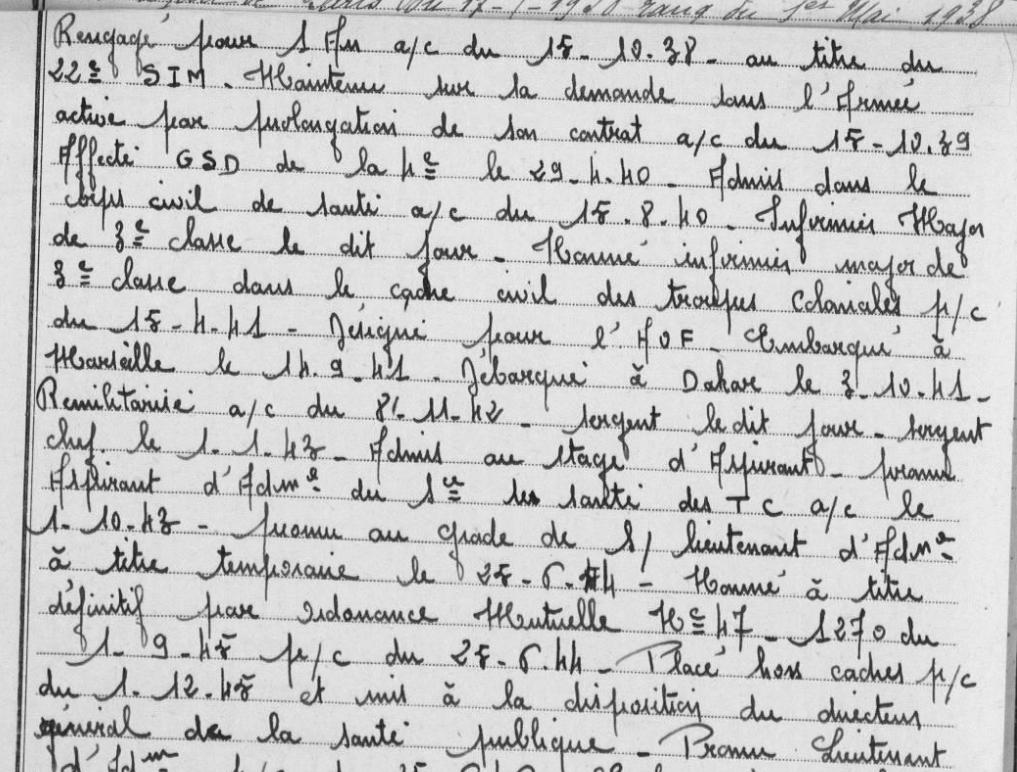 17-1-1938 rang du 1er Mai 1938
Rengagé pour 1 An a/c du 15-10-38- au titre du
22e SIM. Maintenu sur sa demande dans l'Armée
active par prolongation de son contrat a/c du 15-10.39
Affecté GSD de la 4e le 29-4-40- Admis dans le
corps civil de santé a/c du 15.8.40- Infirmier Major
de 3e classe le dit jour- Nommé infirmier major de
3e classe dans le cadre civil des troupes Coloniales p/c
du 15-4-41- Désigné pour l'AOF- Embarqué à
Marseille le 14.9.41. Débarqué à Dakar le 3-10-41-
Remilitarisé a/c du 8-11-42- sergent le dit jour- sergent
chef le 1-1-43- Admis au stage d'Aspirant- promu
Aspirant d'Adme du santé des TC a/c le
1-10-43- promu au grade de S/ lieutenant d'Adme
à titre temporaire le 25-6-44- Nommé à titre
définitif par ordonance No 47-1270 du
1-9-45 p/c du 25-6.44- Placé hors cadres p/c
du 1-12-45 et mis à la disposition du directeur
général de la santé publique- Promu Lieutenant
d'Adm